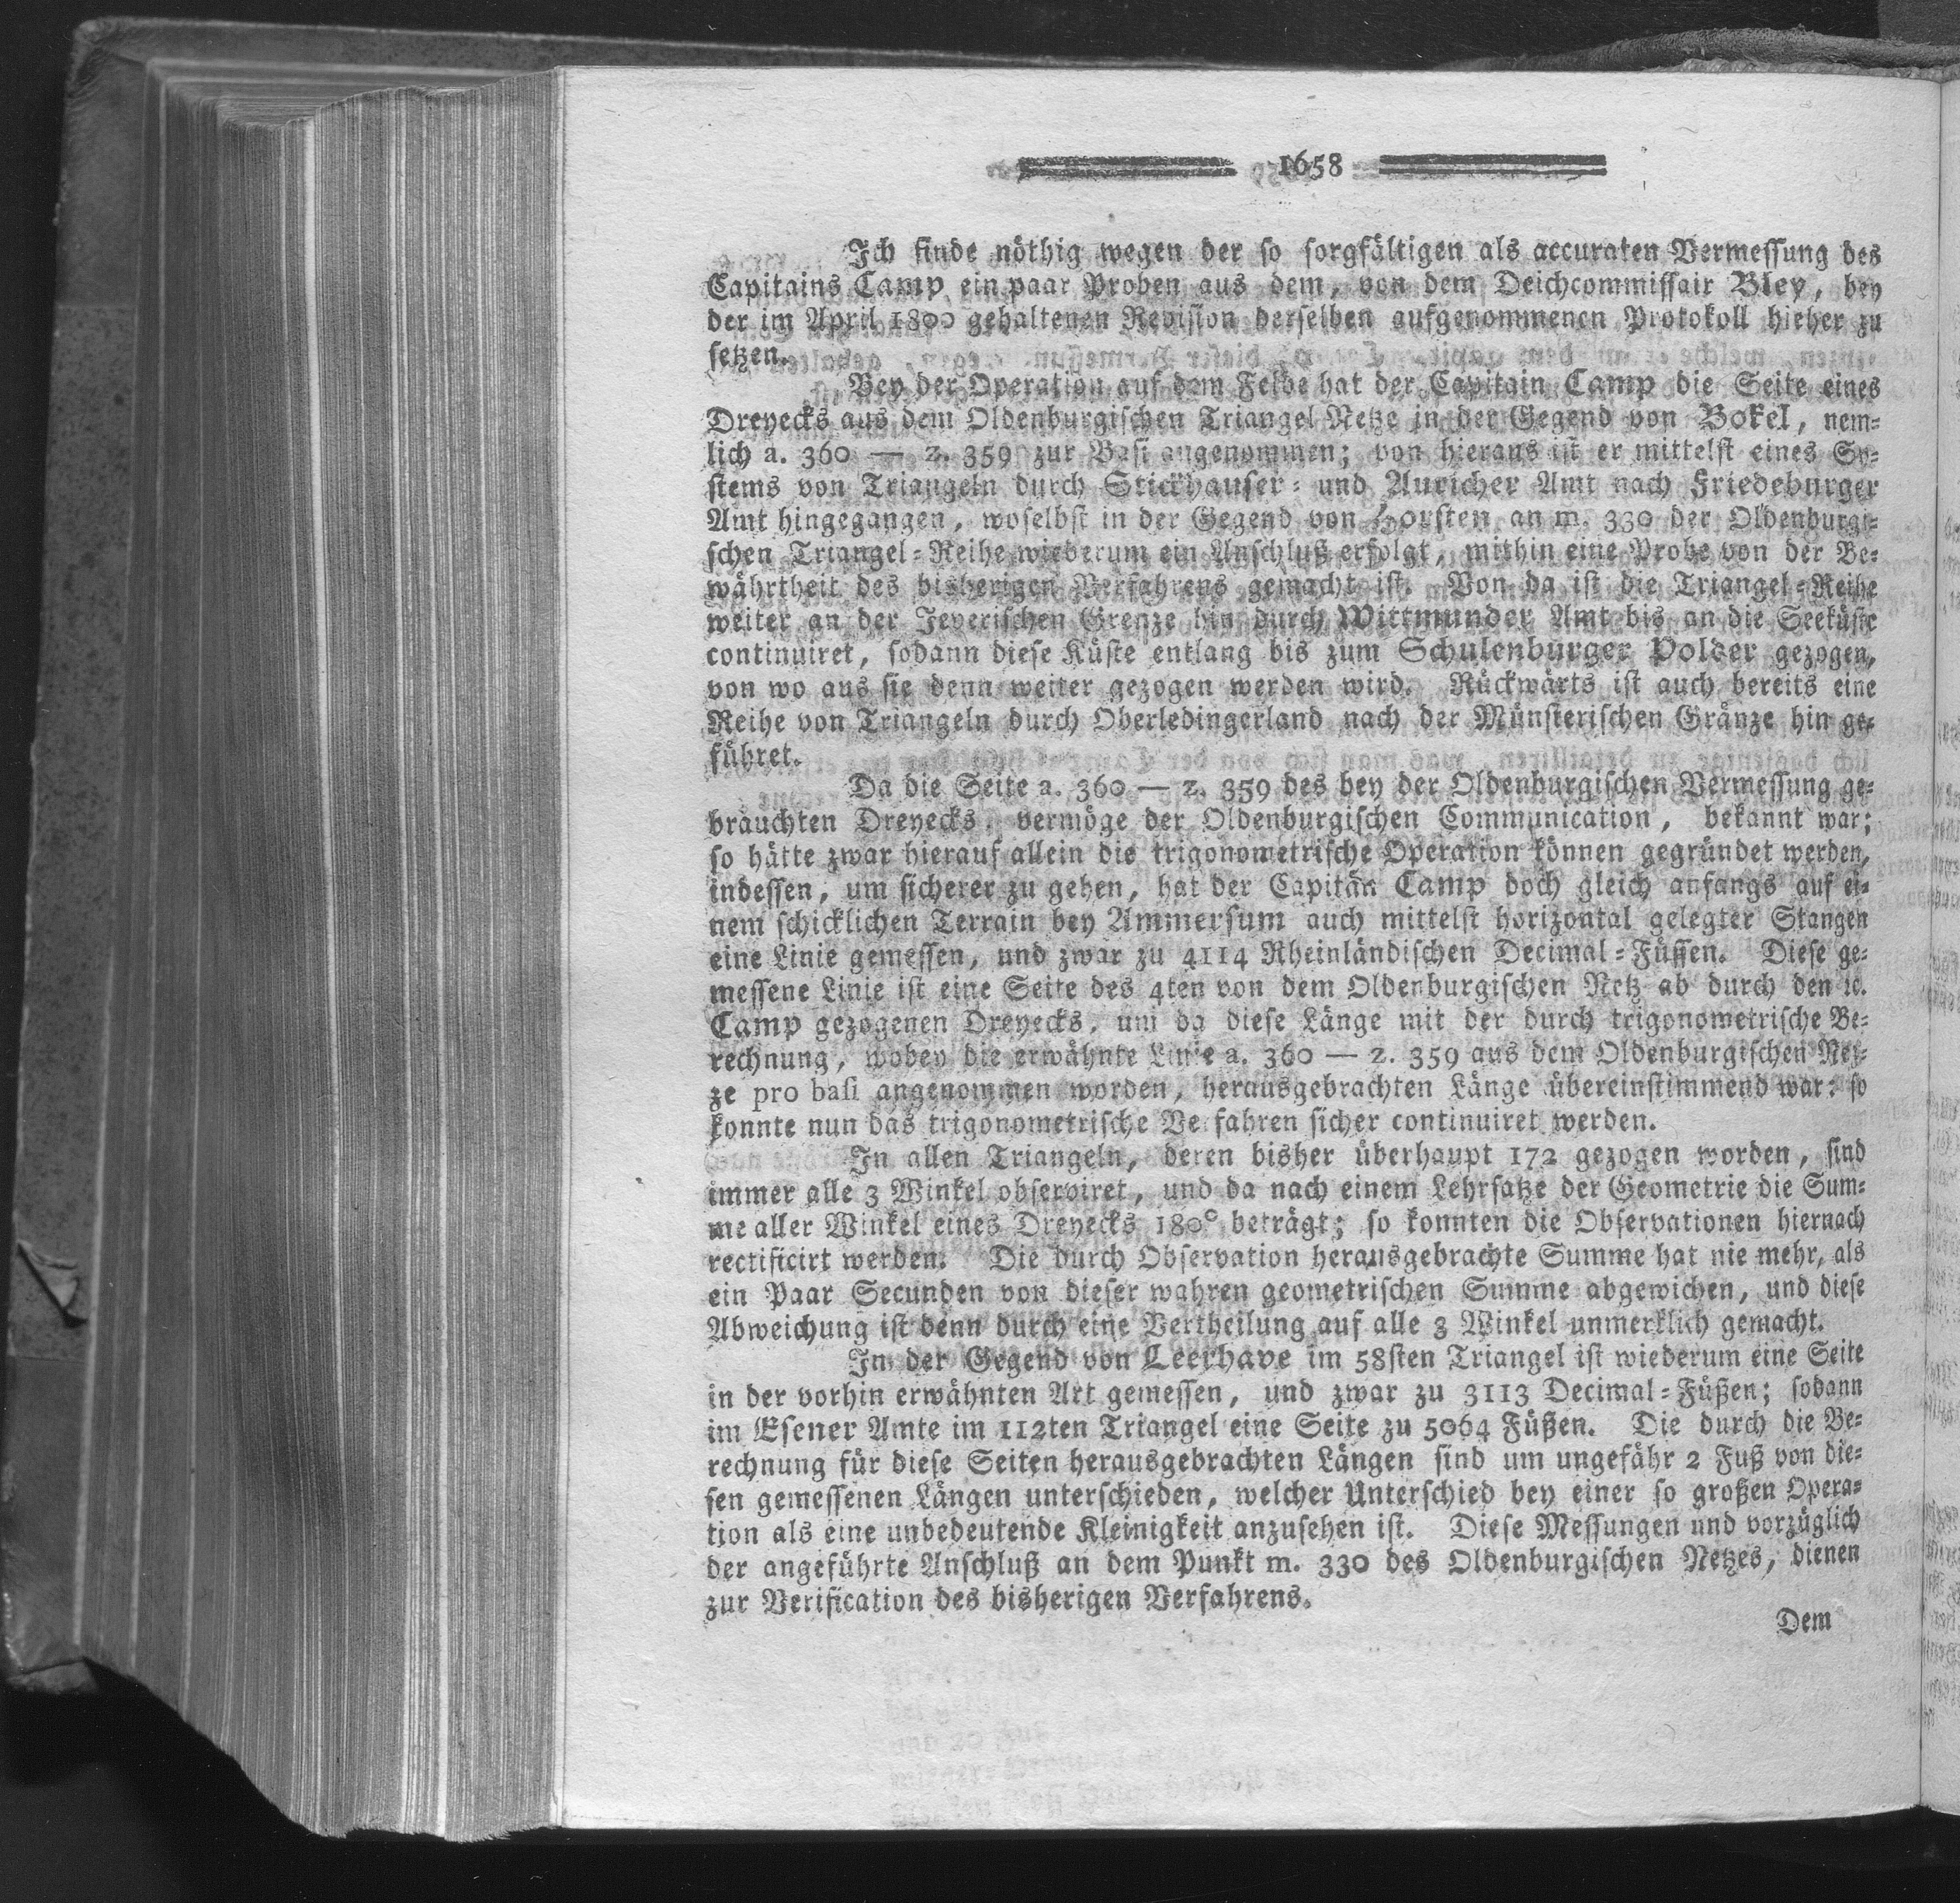 1658
Ich finde nöthig wegen der so sorgfältigen als accuraten Vermessung des
Capitains Camp ein paar Proben aus dem, von dem Deichcommissair Bley, bey
der im April 1800 gehaltenen Revision derselben aufgenommenen Protokoll hieher zu
setzen.
Bey der Operation auf dem Felde hat der Capitain Camp die Seite eines
Dreyecks aus dem Oldenburgischen Triangel Netze in der Gegend von Bokel, nem-
lich a. 360 — z. 359 zur Basi angenommen; von hieraus ist er mittelst eines Sy-
stems von Triangeln durch Stickhauser- und Auricher Amt nach Friedeburger
Amt hingegangen, woselbst in der Gegend von Horsten an m. 330 der Oldenburgi-
schen Triangel-Reihe wiederum ein Anschluß erfolgt, mithin eine Probe von der Be-
währtheit des bisherigen Verfahrens gemacht ist. Von da ist die Triangel-Reihe
weiter an der Jeverischen Grenze hin durch Wittmunder Amt bis an die Seeküste
continuiret, sodann diese Küste entlang bis zum Schulenburger Polder gezogen,
von wo aus sie denn weiter gezogen werden wird. Rückwärts ist auch bereits eine
Reihe von Triangeln durch Oberledingerland nach der Münsterischen Gränze hin ge-
führet.
Da die Seite a. 360 — z. 359 des bey der Oldenburgischen Vermessung ge-
brauchten Dreyecks, vermöge der Oldenburgischen Communication, bekannt war;
so hätte zwar hierauf allein die trigonometrische Operation können gegründet werden,
indessen, um sicherer zu gehen, hat der Capitän Camp doch gleich anfangs auf ei-
nem schicklichen Terrain bey Ammersum auch mittelst horizontal gelegter Stangen
eine Linie gemessen, und zwar zu 4114 Rheinländischen Decimal-Füssen. Diese ge-
messene Linie ist eine Seite des 4ten von dem Oldenburgischen Netz ab durch den ꝛc.
Camp gezogenen Dreyecks, uni da diese Länge mit der durch trigonometrische Be-
rechnung, wobey die erwähnte Linie a. 360 — z. 359 aus dem Oldenburgischen Net-
ze pro basi angenommen worden, herausgebrachten Länge übereinstimmend war: so
konnte nun das trigonometrische Verfahren sicher continuiret werden.
In allen Triangeln, deren bisher überhaupt 172 gezogen worden, sind
immer alle 3 Winkel observiret, und da nach einem Lehrsatze der Geometrie die Sum-
me aller Winkel eines Dreyecks 180° beträgt; so konnten die Observationen hiernach
rectificirt werden. Die durch Observation herausgebrachte Summe hat nie mehr, als
ein Paar Secunden von dieser wahren geometrischen Summe abgewichen, und diese
Abweichung ist denn durch eine Vertheilung auf alle 3 Winkel unmerklich gemacht.
In der Gegend von Leerhave im 58sten Triangel ist wiederum eine Seite
in der vorhin erwähnten Art gemessen, und zwar zu 3113 Decimal-Füßen; sodann
im Esener Amte im 112ten Triangel eine Seite zu 5064 Füßen. Die durch die Be-
rechnung für diese Seiten herausgebrachten Längen sind um ungefähr 2 Fuß von die-
sen gemessenen Längen unterschieden, welcher Unterschied bey einer so großen Opera-
tion als eine unbedeutende Kleinigkeit anzusehen ist. Diese Messungen und vorzüglich
der angeführte Anschluß an dem Punkt m. 330 des Oldenburgischen Netzes, dienen
zur Verification des bisherigen Verfahrens.
Dem